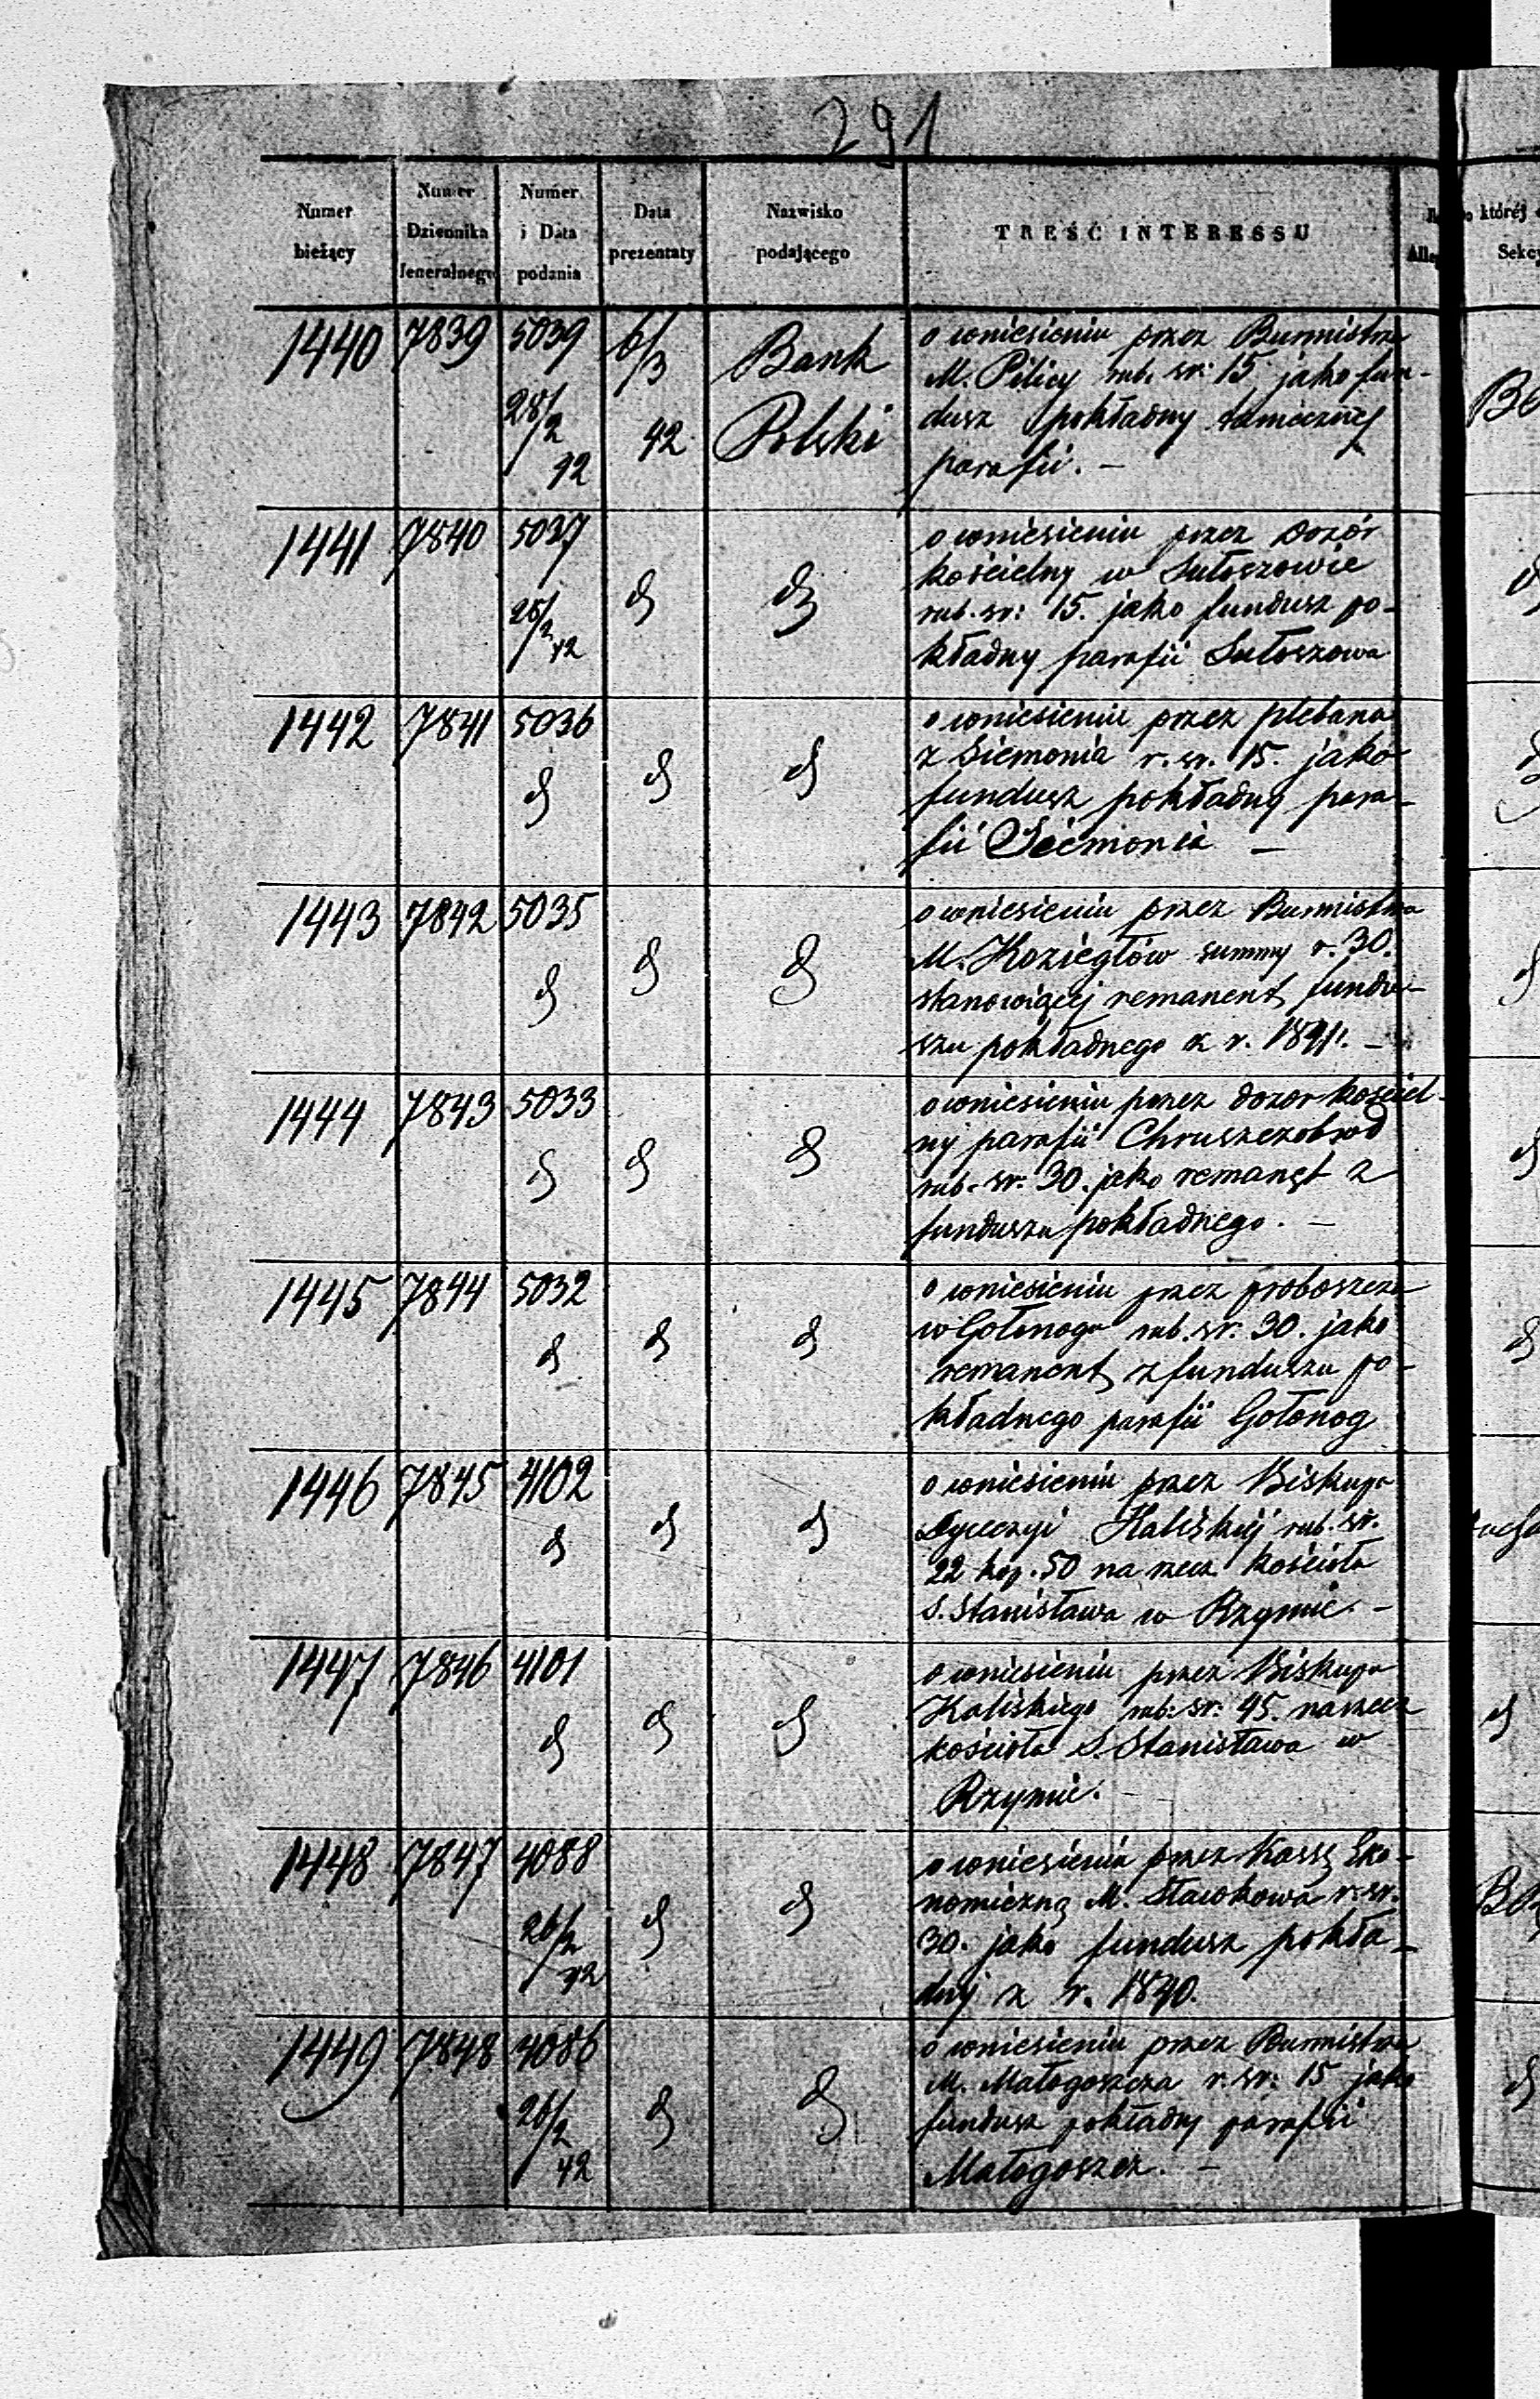 291
Numer bieżący
Numer Dziennika Jeneralnego
Numer i Data podania
Data prezentaty
Nazwisko podającego
TREŚĆ INTERESSU
której
1440 7839 5039 28/2 42 6/3 42 Bank Polski
o wniesieniu przez Burmistrza
M. Pilicy rub. sr: 15 jako fun-
dusz pokładny tamecznej
parafii. —
1441 7840 5037 28/2 42 d d
o wniesieniu przez Dozór
kościelny w Sułoszowie
rub. sr: 15. jako fundusz po-
kładny parafii Sułoszowa
1442 7841 5036 d d d
o wniesieniu przez plebana
z Siemonia r. sr. 15. jako
fundusz pokładny para-
fii Siemonia —
1443 7842 5035 d d d
o wniesieniu przez Burmistrza
M. Koziegłów summy r. 30.
stanowiącej remanent fundu-
szu pokładnego z r. 1841. —
1444 7843 5033 d d d
o wniesieniu przez dozor kościel-
ny parafii Chruszczobrod
rub. sr. 30. jako remanęt z
funduszu pokładnego. —
1445 7844 5032 d d d
o wniesieniu przez proboszcza
w Gołonogu rub. sr. 30. jako
remanent z funduszu po-
kładnego parafii Gołonog
1446 7845 4102 d d d
o wniesieniu przez Biskupa
Dyecezyi Kaliskiej rub. sr.
22 kop. 50 na rzecz kościoła
S. Stanisława w Rzymie. —
1447 7846 4101 d d d
o wniesieniu przez Biskupa
Kaliskiego rub: sr: 45. na rzecz
kościoła S. Stanisława w
Rzymie.
1448 7847 4088 26/2 42 d d
o wniesieniu przez Kassę Eko-
nomiczną M. Sławkowa r. sr.
30. jako fundusz pokła-
dny z r. 1840.
1449 7848 4086 26/2 42 d d
o wniesieniu przez Burmistrza
M. Małogoszcza r. sr: 15 jako
fundusz pokładny parafii
Małogoszcz. —